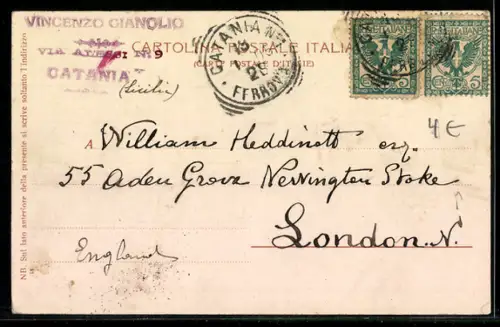 VINCENZO GIANOLIO
VIA 9
CATANIA
(Sicilia)
CARTOLINA POSTALE ITALIANA
(CARTE POSTALE D'ITALIE)
CATANIA
FERROVIA
5 5
4 €
A. William Heddinott esq.
55 Aden Grove Newington Stoke
London. N.
England
NB. Sul lato anteriore della presente si scrive soltanto l'indirizzo